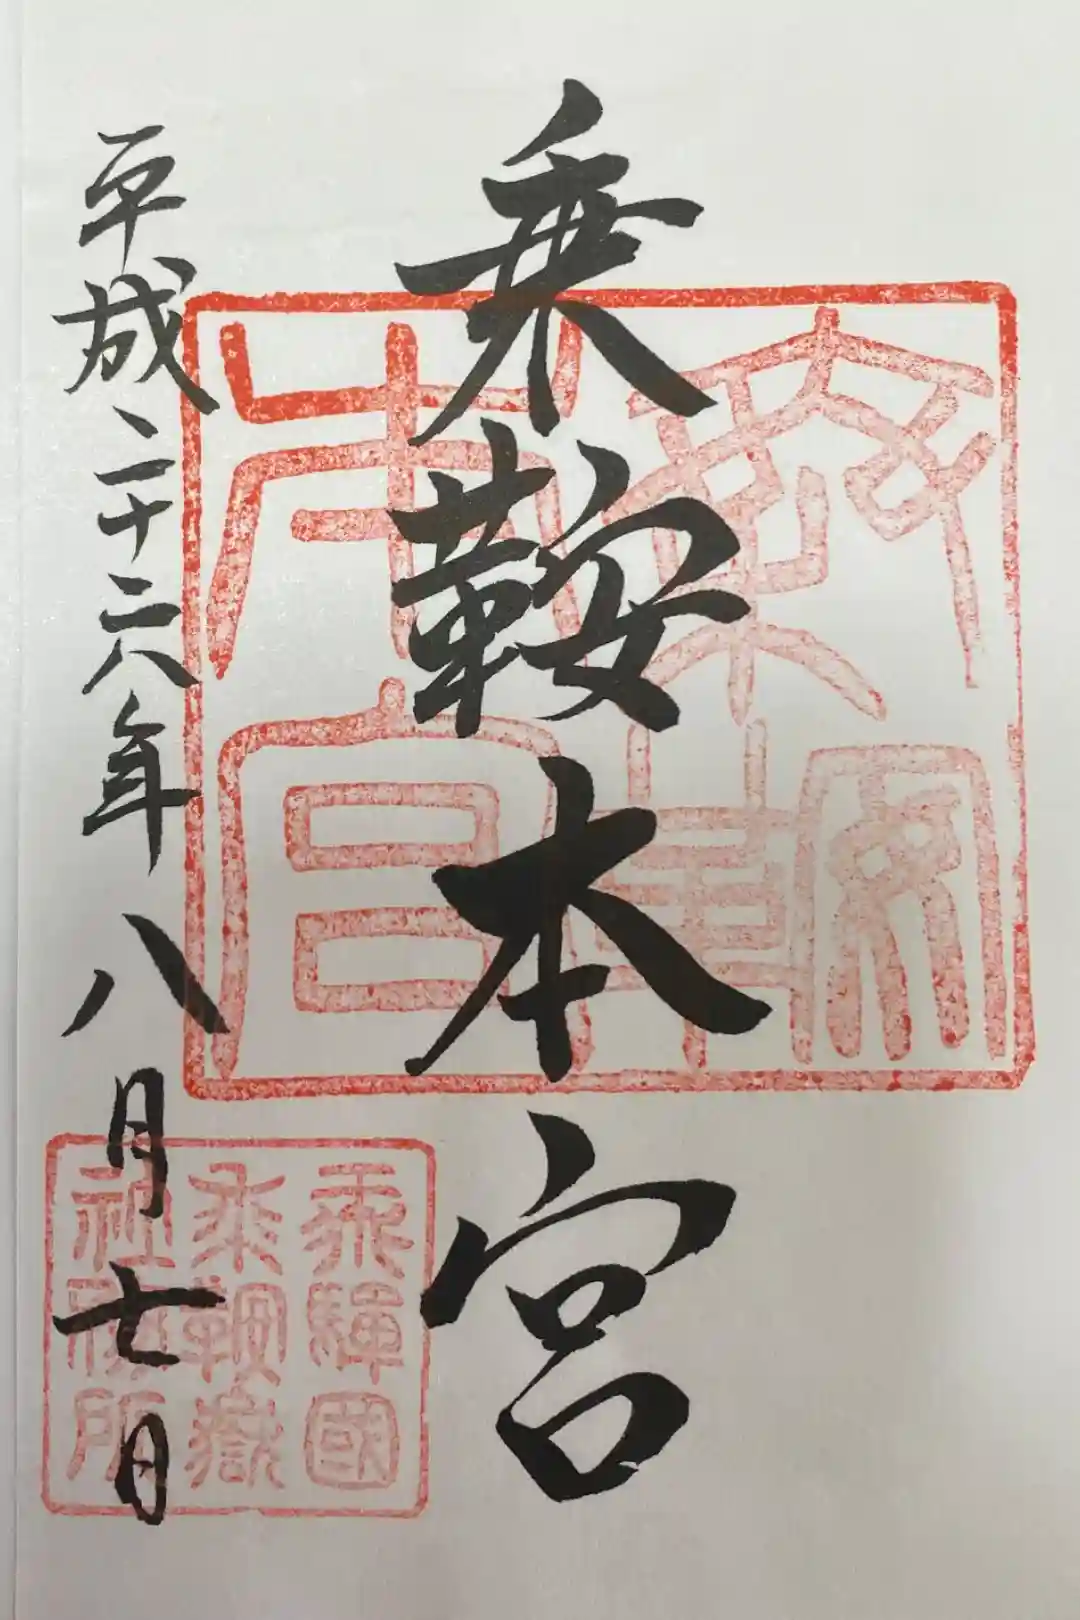 乗鞍本宮
平成二十六年八月七日
飛驒國
乗鞍嶽
社務所